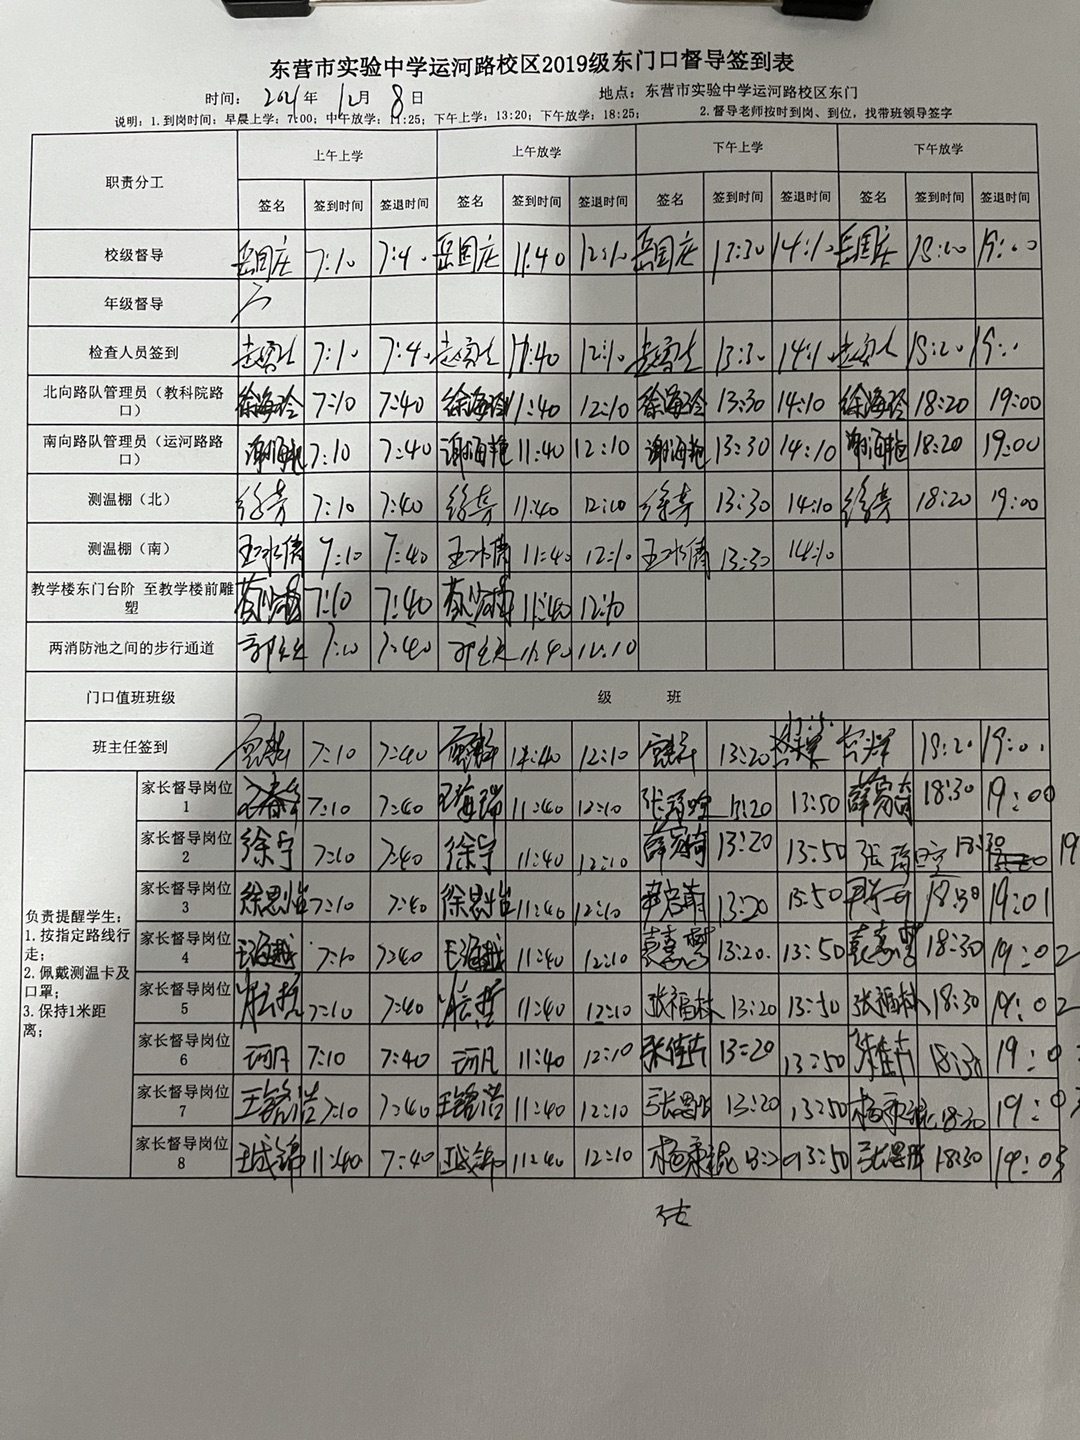 东营市实验中学运河路校区2019级东门口督导签到表
时间： 2021年 12月 8日 地点：东营市实验中学运河路校区东门
说明：1.到岗时间：早晨上学：7:00；中午放学：11:25；下午上学：13:20；下午放学：18:25； 2.督导老师按时到岗、到位，找带班领导签字
职责分工 上午上学 上午放学 下午上学 下午放学
签名 签到时间 签退时间 签名 签到时间 签退时间 签名 签到时间 签退时间 签名 签到时间 签退时间
校级督导 岳国庄 7:10 7:40 岳国庄 11:40 12:10 岳国庄 13:30 14:10 岳国庄 18:20 19:00
年级督导
检查人员签到 7:10 7:40 11:40 12:10 13:30 14:10 18:20
北向路队管理员（教科院路口） 徐海玲 7:10 7:40 徐海玲 11:40 12:10 徐海玲 13:30 14:10 徐海玲 18:20 19:00
南向路队管理员（运河路路口） 谢海艳 7:10 7:40 谢海艳 11:40 12:10 谢海艳 13:30 14:10 谢海艳 18:20 19:00
测温棚（北） 徐芳 7:10 7:40 徐芳 11:40 12:10 徐芳 13:30 14:10 徐芳 18:20 19:00
测温棚（南） 王冰倩 7:10 7:40 王冰倩 11:40 12:10 王冰倩 13:30 14:10
教学楼东门台阶 至教学楼前雕塑 7:10 7:40 11:40 12:10
两消防池之间的步行通道 7:10 7:40 11:40 12:10
门口值班班级 级 班
班主任签到 7:10 7:40 11:40 12:10 13:20 18:20 19:00
负责提醒学生：
1.按指定路线行走；
2.佩戴测温卡及口罩；
3.保持1米距离；
家长督导岗位1 7:10 7:40 王海瑞 11:40 12:10 13:20 13:50 薛家琦 18:30 19:00
家长督导岗位2 徐宁 7:10 7:40 徐宁 11:40 12:10 薛家琦 13:20 13:50 18:30 19
家长督导岗位3 徐思怡 7:10 7:40 徐思怡 11:40 12:10 13:20 13:50 18:30 19:01
家长督导岗位4 7:10 7:40 11:40 12:10 袁嘉雪 13:20 13:50 袁嘉雪 18:30 19:02
家长督导岗位5 7:10 7:40 11:40 12:10 张福林 13:20 13:50 张福林 18:30 19:02
家长督导岗位6 7:10 7:40 11:40 12:10 13:20 13:50 18:30 19:0
家长督导岗位7 王铭浩 7:10 7:40 王铭浩 11:40 12:10 13:20 13:50 18:30 19:03
家长督导岗位8 11:40 7:40 11:40 12:10 13:20 13:50 18:30 19:05